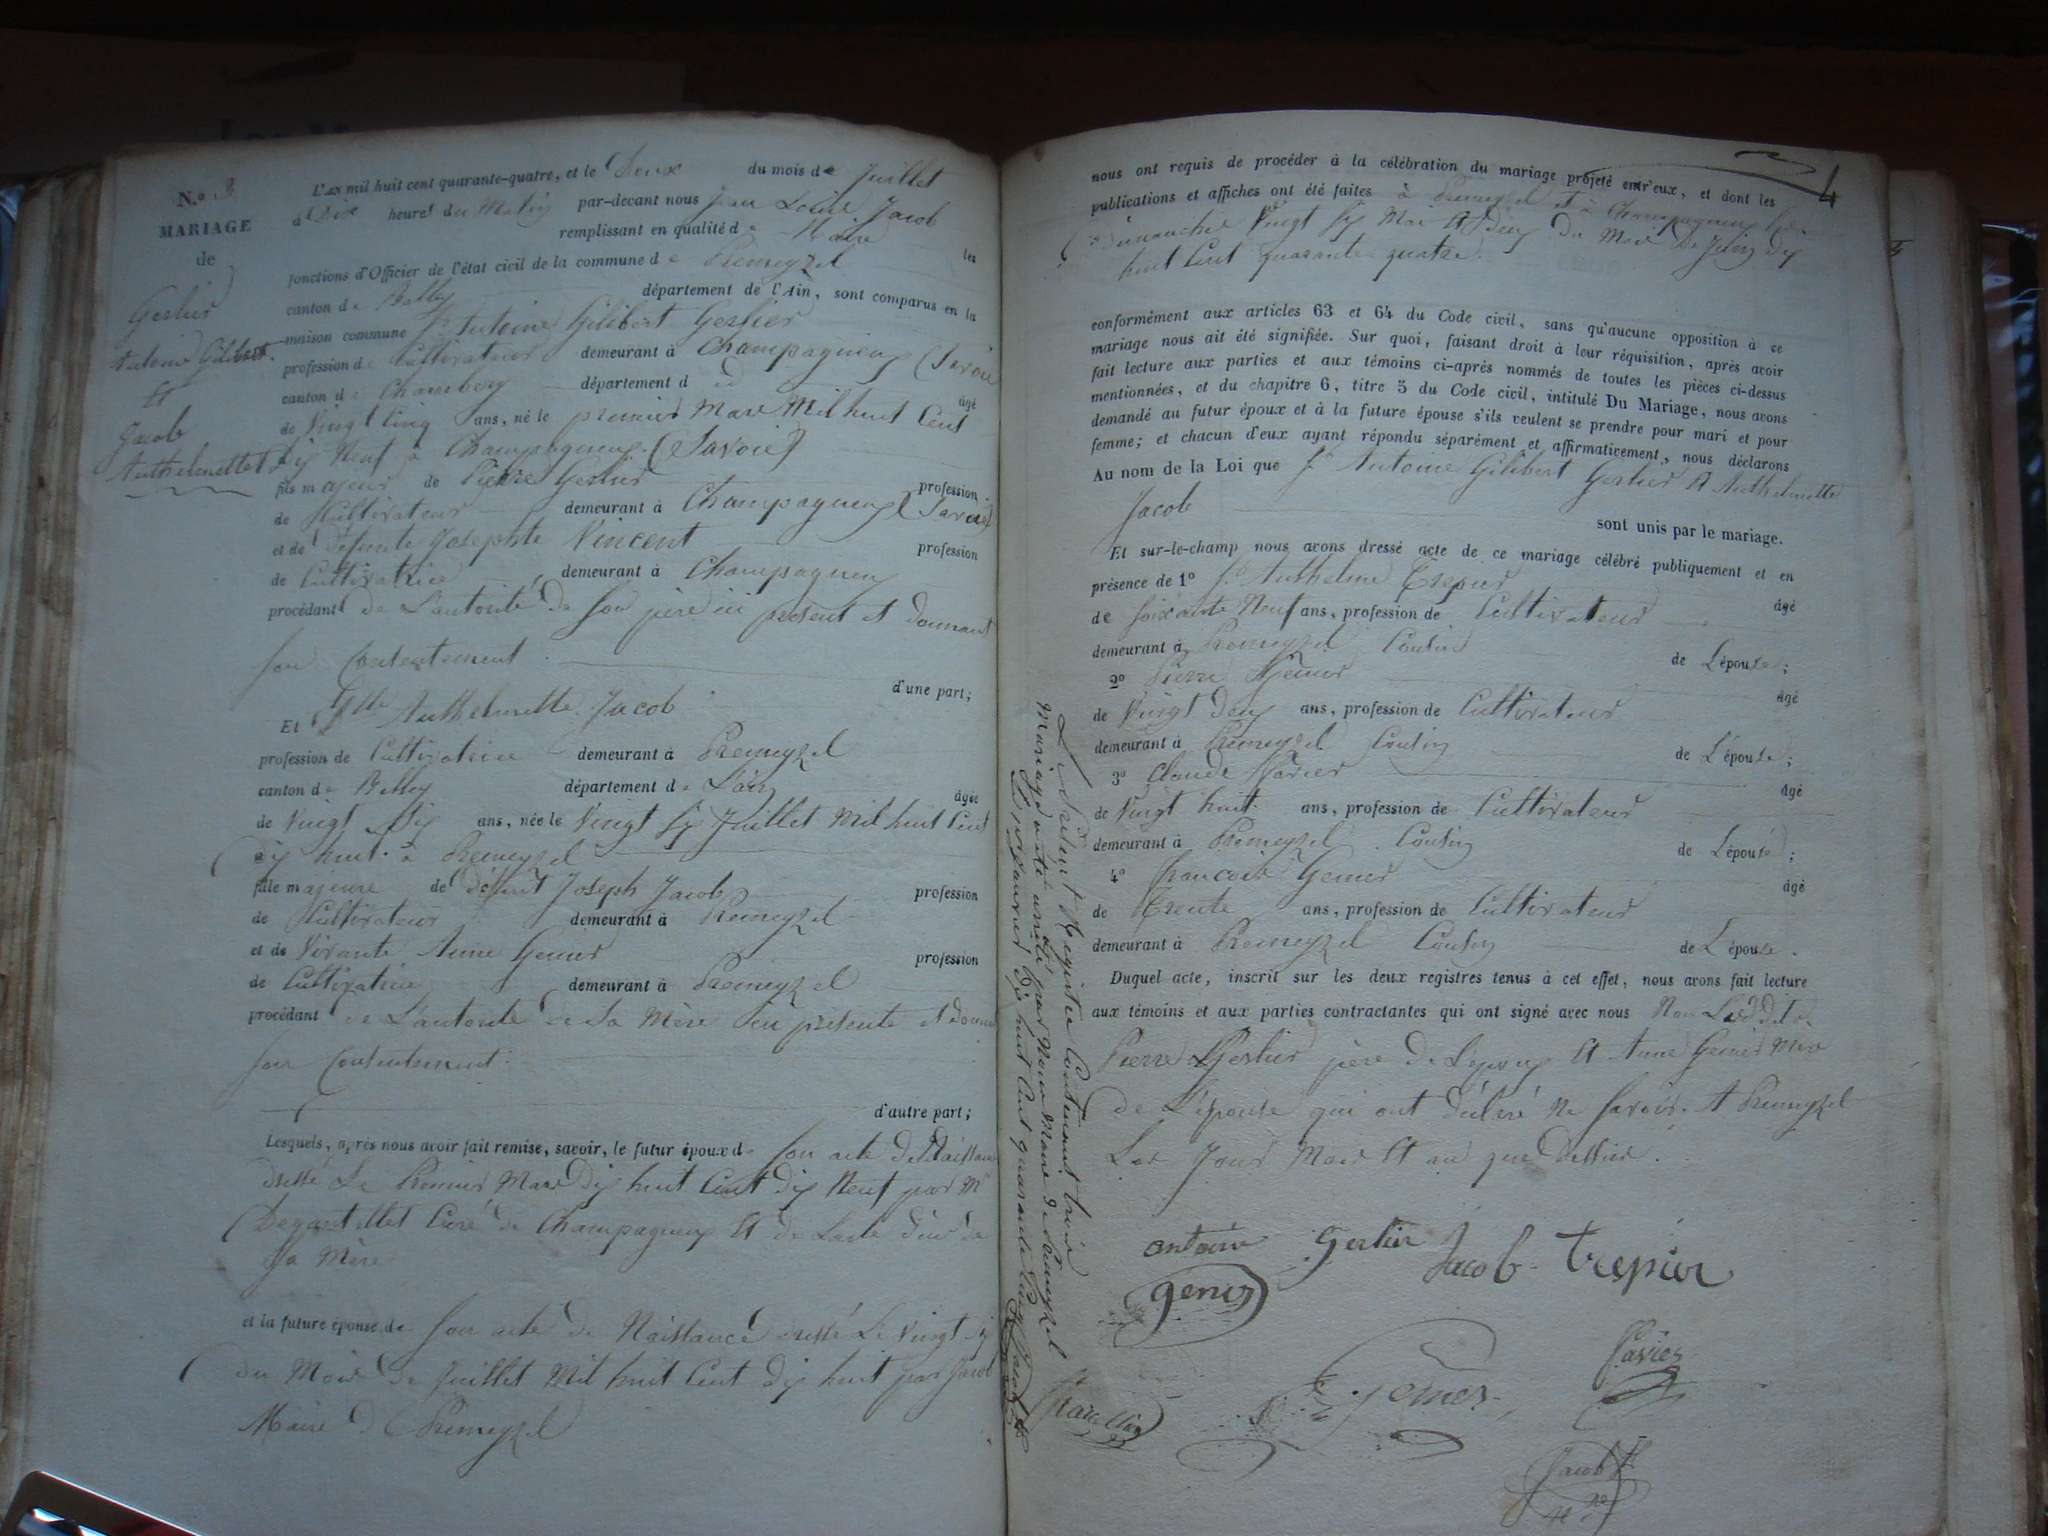 N.o 3
MARIAGE
de
Gerlier
Antoine Gilibert
Et
Jacob
Anthelmette
L'AN mil huit cent quarante-quatre, et le Deux du mois de Juillet
à Dix heures du Matin par-devant nous Jean Louis Jacob
remplissant en qualité de Maire les
fonctions d'Officier de l'état civil de la commune de Premeyzel
canton de Belley département de l'Ain, sont comparus en la
maison commune Sr Antoine Gilibert Gerlier
profession de Cultivateur demeurant à Champagneux (Savoie
canton de Chambery département d id âgé
de Vingt Cinq ans, né le premier Mars Mil huit Cent
Dix Neuf à Champagneux (Savoie)
fils majeur de Pierre Gerlier profession
de Cultivateur demeurant à Champagneux (Savoie)
et de défunte Josephte Vincent profession
de Cultivatrice demeurant à Champagneux
procédant de L'autorité de Son père ici présent et donnant
Son Consentement
d'une part;
Et Dlle Anthelmette Jacob
profession de Cultivatrice demeurant à Premeyzel
canton de Belley département de L'ain âgée
de Vingt Six ans, née le Vingt Six Juillet Mil huit Cent
Dix huit à Premeyzel
fille majeure de Défunt Joseph Jacob profession
de Cultivateur demeurant à Premeyzel
et de Vivante Anne Gemer profession
de Cultivatrice demeurant à Premeyzel
procédant de L'autorité de Sa Mère Ici présente et donne
Son Consentement
d'autre part;
Lesquels, après nous avoir fait remise, savoir, le futur époux de Son acte de Naissance
dressé Le Premier Mars Dix huit Cent Dix Neuf par Mr
Curé de Champagneux Et de Lacte de
Sa Mère
et la future épouse de Son acte de Naissance dressé Le Vingt Six
du Mois de Juillet Mil huit Cent Dix huit par Jacob
Maire de Premeyzel
4
nous ont requis de procéder à la célébration du mariage projeté entr'eux, et dont les
publications et affiches ont été faites à Premeyzel et à Champagneux les
Dimanches Vingt Six Mai Et Deux Du Mois de Juin Dix
huit Cent quarante quatre
conformément aux articles 63 et 64 du Code civil, sans qu'aucune opposition à ce
mariage nous ait été signifiée. Sur quoi, faisant droit à leur réquisition, après avoir
fait lecture aux parties et aux témoins ci-après nommés de toutes les pièces ci-dessus
mentionnées, et du chapitre 6, titre 5 du Code civil, intitulé Du Mariage, nous avons
demandé au futur époux et à la future épouse s'ils veulent se prendre pour mari et pour
femme; et chacun d'eux ayant répondu séparément et affirmativement, nous déclarons
Au nom de la Loi que Sr Antoine Gilibert Gerlier et Anthelmette
Jacob sont unis par le mariage.
Et sur-le-champ nous avons dressé acte de ce mariage célébré publiquement et en
présence de 1o Sr Anthelme Trepier âgé
de Soixante Neuf ans, profession de Cultivateur
demeurant à Premeyzel Cousin de L'épouse;
2o Pierre Gemer âgé
de Vingt Deux ans, profession de Cultivateur
demeurant à Premeyzel Cousin de L'épouse;
3o Claude Varier âgé
de Vingt huit ans, profession de Cultivateur
demeurant à Premeyzel Cousin de L'épouse;
4o François Gemer âgé
de Trente ans, profession de Cultivateur
demeurant à Premeyzel Cousin de L'épouse.
Duquel acte, inscrit sur les deux registres tenus à cet effet, nous avons fait lecture
aux témoins et aux parties contractantes qui ont signé avec nous Non Les Dits
Pierre Gerlier père de Lepoux Et Anne Gemer Mère
de L'épouse qui ont déclaré Ne Savoir. A Premeyzel
Les Jour Mois Et an que Dessus.
Le présent Registre Contenant trois
Mariages a été arrêté par Nous Maire de Premeyzel
Le premier janvier Dix huit Cent quarante Cinq
antoine Gerlier Jacob trepier
gemer
gemer
Jacob